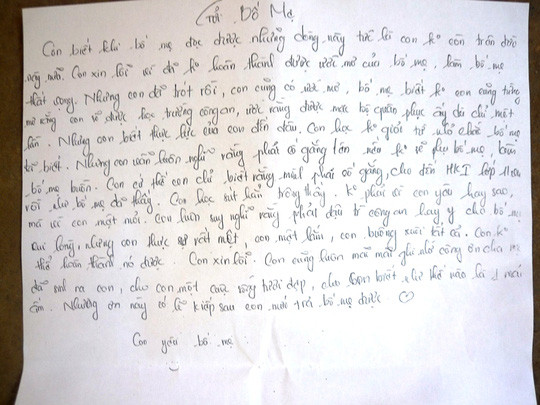 Gửi Bố Mẹ
Con biết khi bố mẹ đọc được những dòng này tức là con ko còn trên đời
này nữa. Con xin lỗi vì đã ko hoàn thành được ước mơ của bố mẹ, làm bố mẹ
thất vọng. Nhưng con đã trót rồi, con cũng có ước mơ, bố mẹ biết ko con cũng từng
mơ rằng con sẽ được học trường công an, ước rằng được mặc bộ quân phục ấy dù chỉ một
lần. Nhưng con biết thực lực của con đến đâu. Con học ko giỏi từ nhỏ chắc bố mẹ
đã biết. Nhưng con luôn luôn nghĩ rằng phải cố gắng lên nếu ko sẽ phụ bố mẹ, khiến
bố mẹ buồn. Con có thể con chỉ biết rằng mình phải cố gắng, cho đến HKI lớp
rồi như bố mẹ đã thấy. Con học sút hẳn trông thấy, ko phải vì con yêu hay sao
mà vì con mệt mỏi. Con luôn suy nghĩ rằng phải đậu trường công an hay y cho bố mẹ
vui lòng, nhưng con thực sự rất mệt, con mệt lắm, con buông xuôi tất cả. Con ko
thể hoàn thành nó được. Con xin lỗi. Con cũng luôn mãi mãi ghi nhớ công ơn cha mẹ
đã sinh ra con, cho con một cuộc sống tươi đẹp, cho con biết như thế nào là 1 mái
ấm. Nhưng ơn này có lẽ kiếp sau con mới trả bố mẹ được ♡
Con yêu bố mẹ